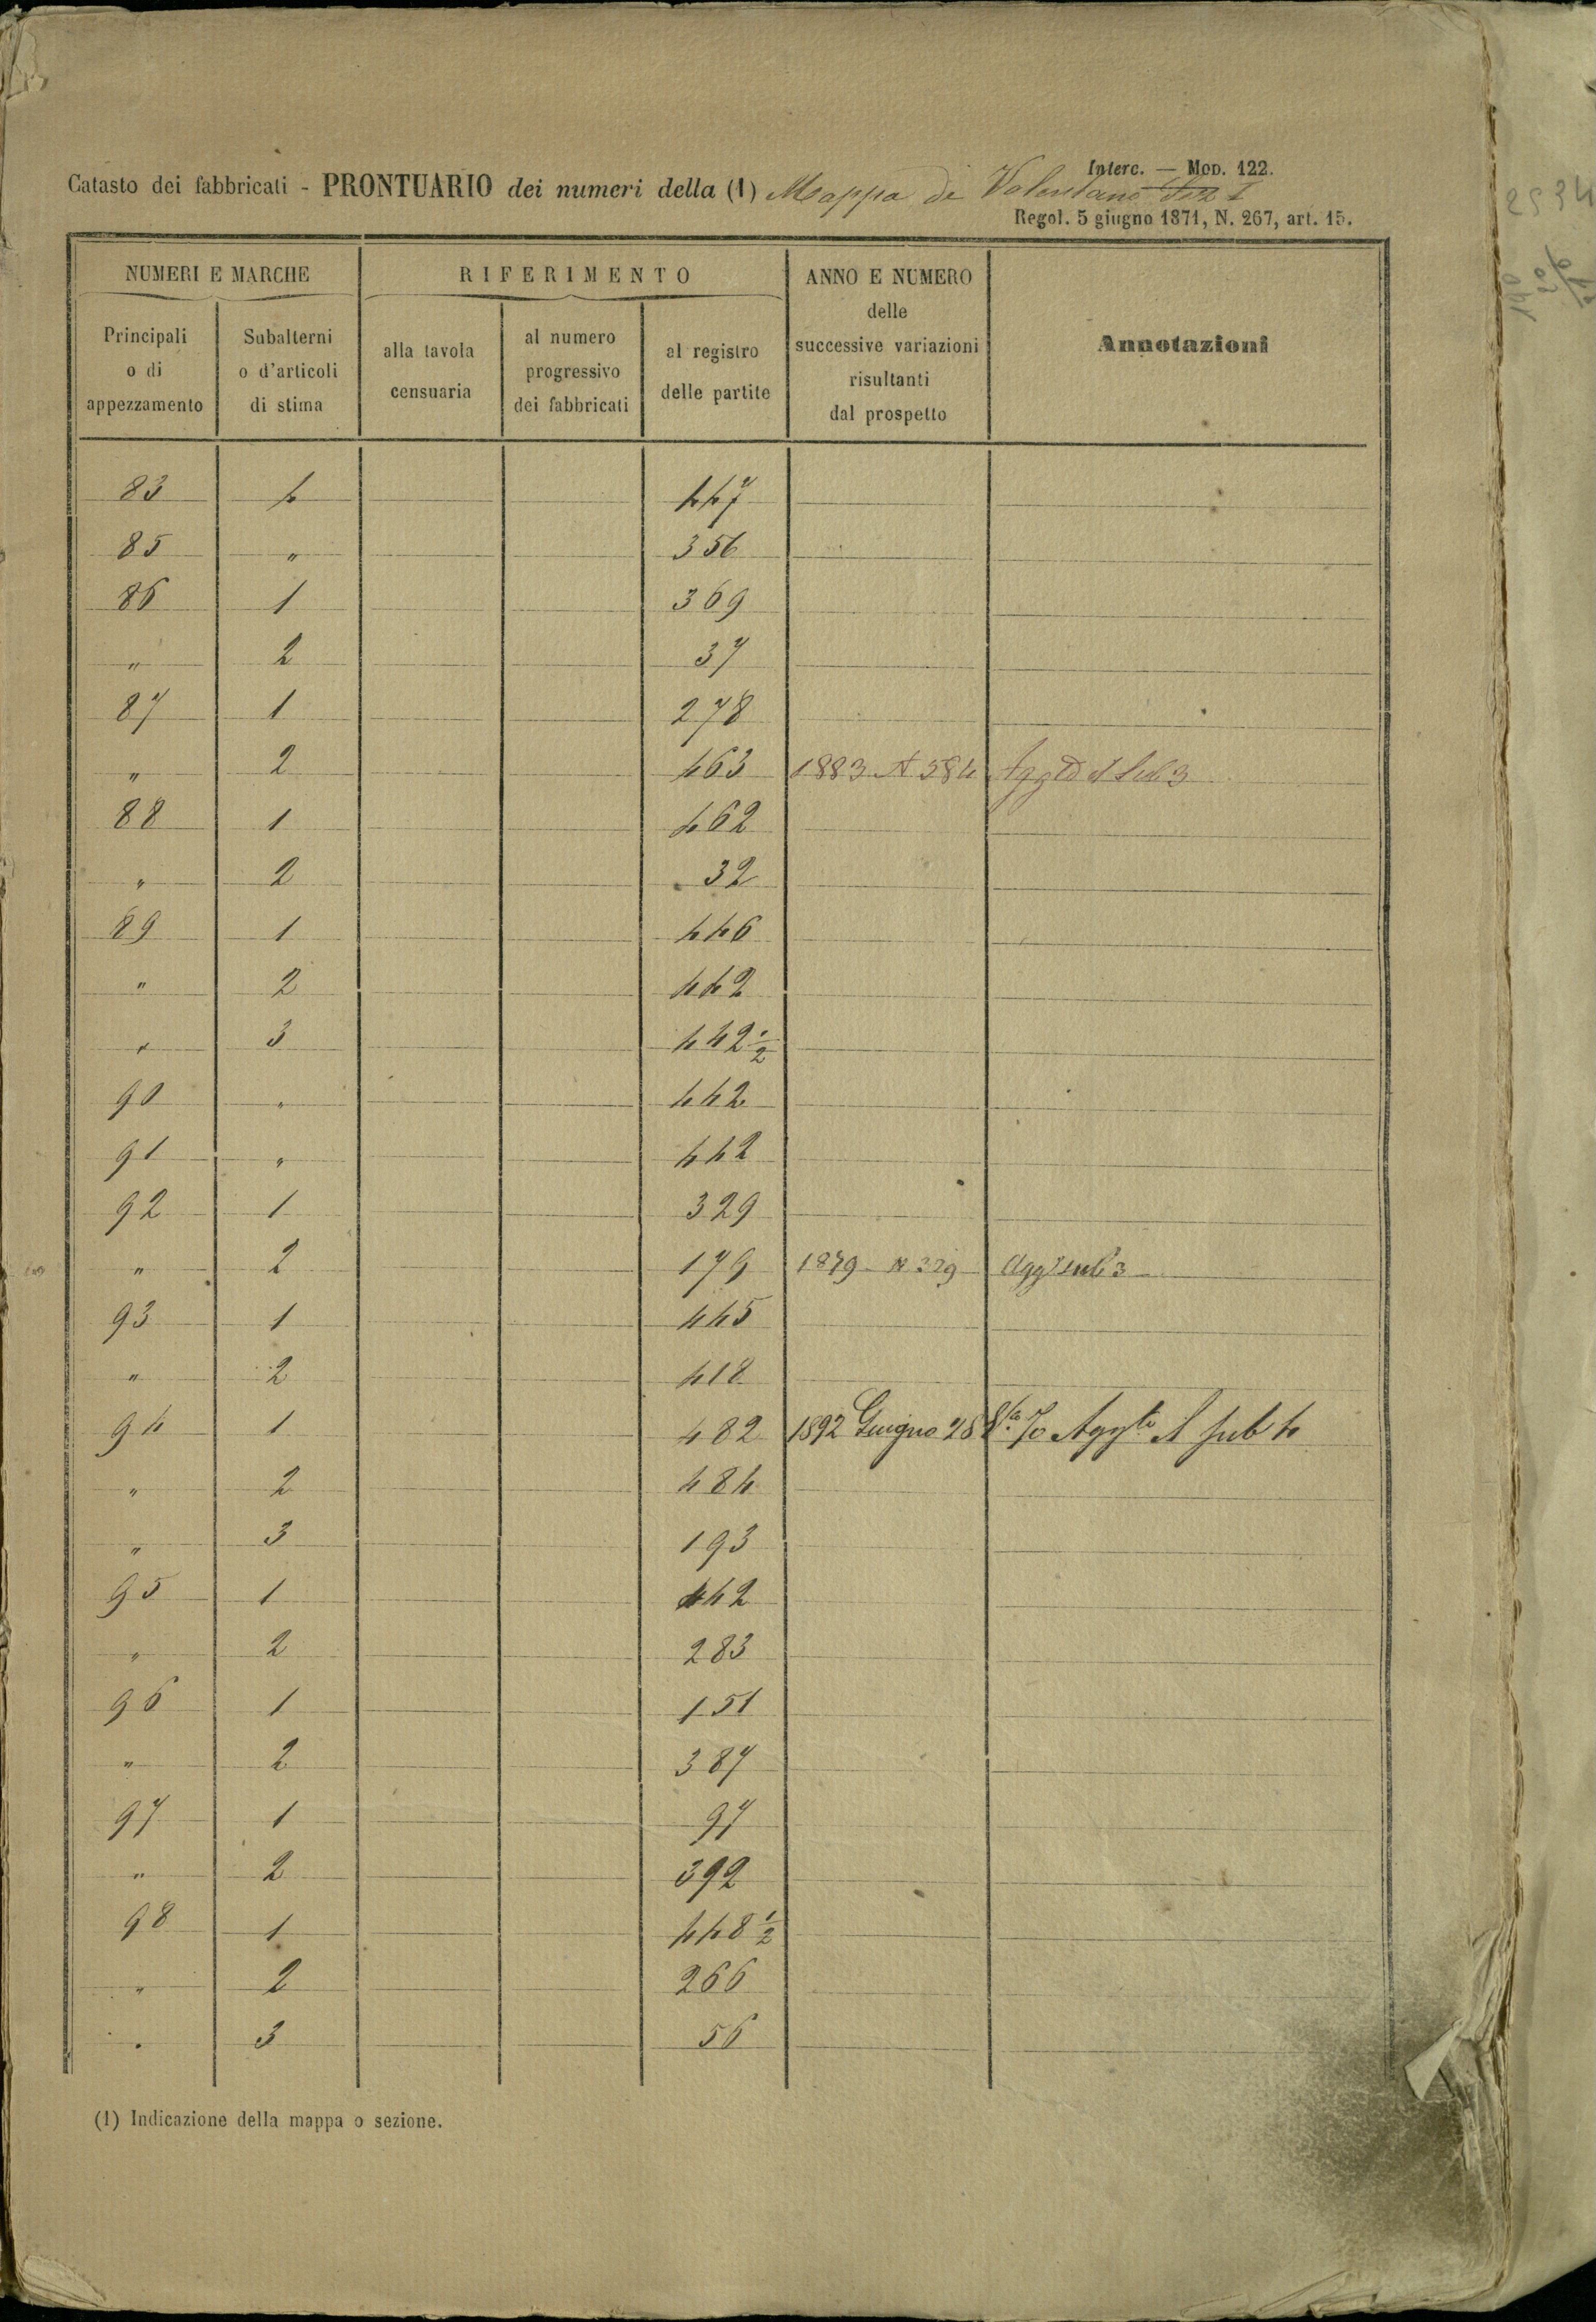 Interc. — Mod. 122.
Catasto dei fabbricati - PRONTUARIO dei numeri della (1) Mappa di Valentano Sez I
Regol. 5 giugno 1871, N. 267, art. 15.
NUMERI E MARCHE RIFERIMENTO ANNO E NUMERO delle successive variazioni risultanti dal prospetto Annotazioni
Principali o di appezzamento Subalterni o d'articoli di stima alla tavola censuaria al numero progressivo dei fabbricati al registro delle partite
83 4 447
85 " 356
86 1 369
" 2 37
87 1 278
" 2 463 1883 N 384 Aggto il sub 3
88 1 462
" 2 32
89 1 446
" 2 442
" 3 442 1/2
90 " 442
91 " 442
92 1 329
" 2 179 1879 N 329 Aggto sub 3
93 1 445
" 2 418
94 1 482 1892 Giugno 28 Aggto il sub 4
" 2 484
" 3 193
95 1 442
" 2 283
96 1 151
" 2 387
97 1 97
" 2 392
98 1 448 1/2
" 2 266
" 3 56
(1) Indicazione della mappa o sezione.
2534